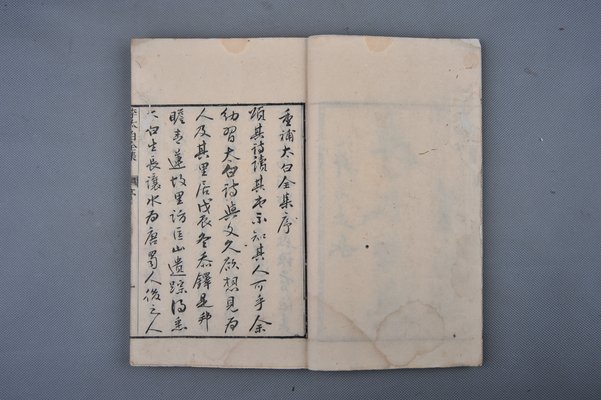 重補太白全集序
頌其詩讀其書不知其人可乎余
幼習太白詩與文久願想見為
人及其里居戊辰冬忝鐸是邦
瞻青蓮故里訪匡山遺踪得悉
太白生長讓水為唐蜀人後之人
李太白全集